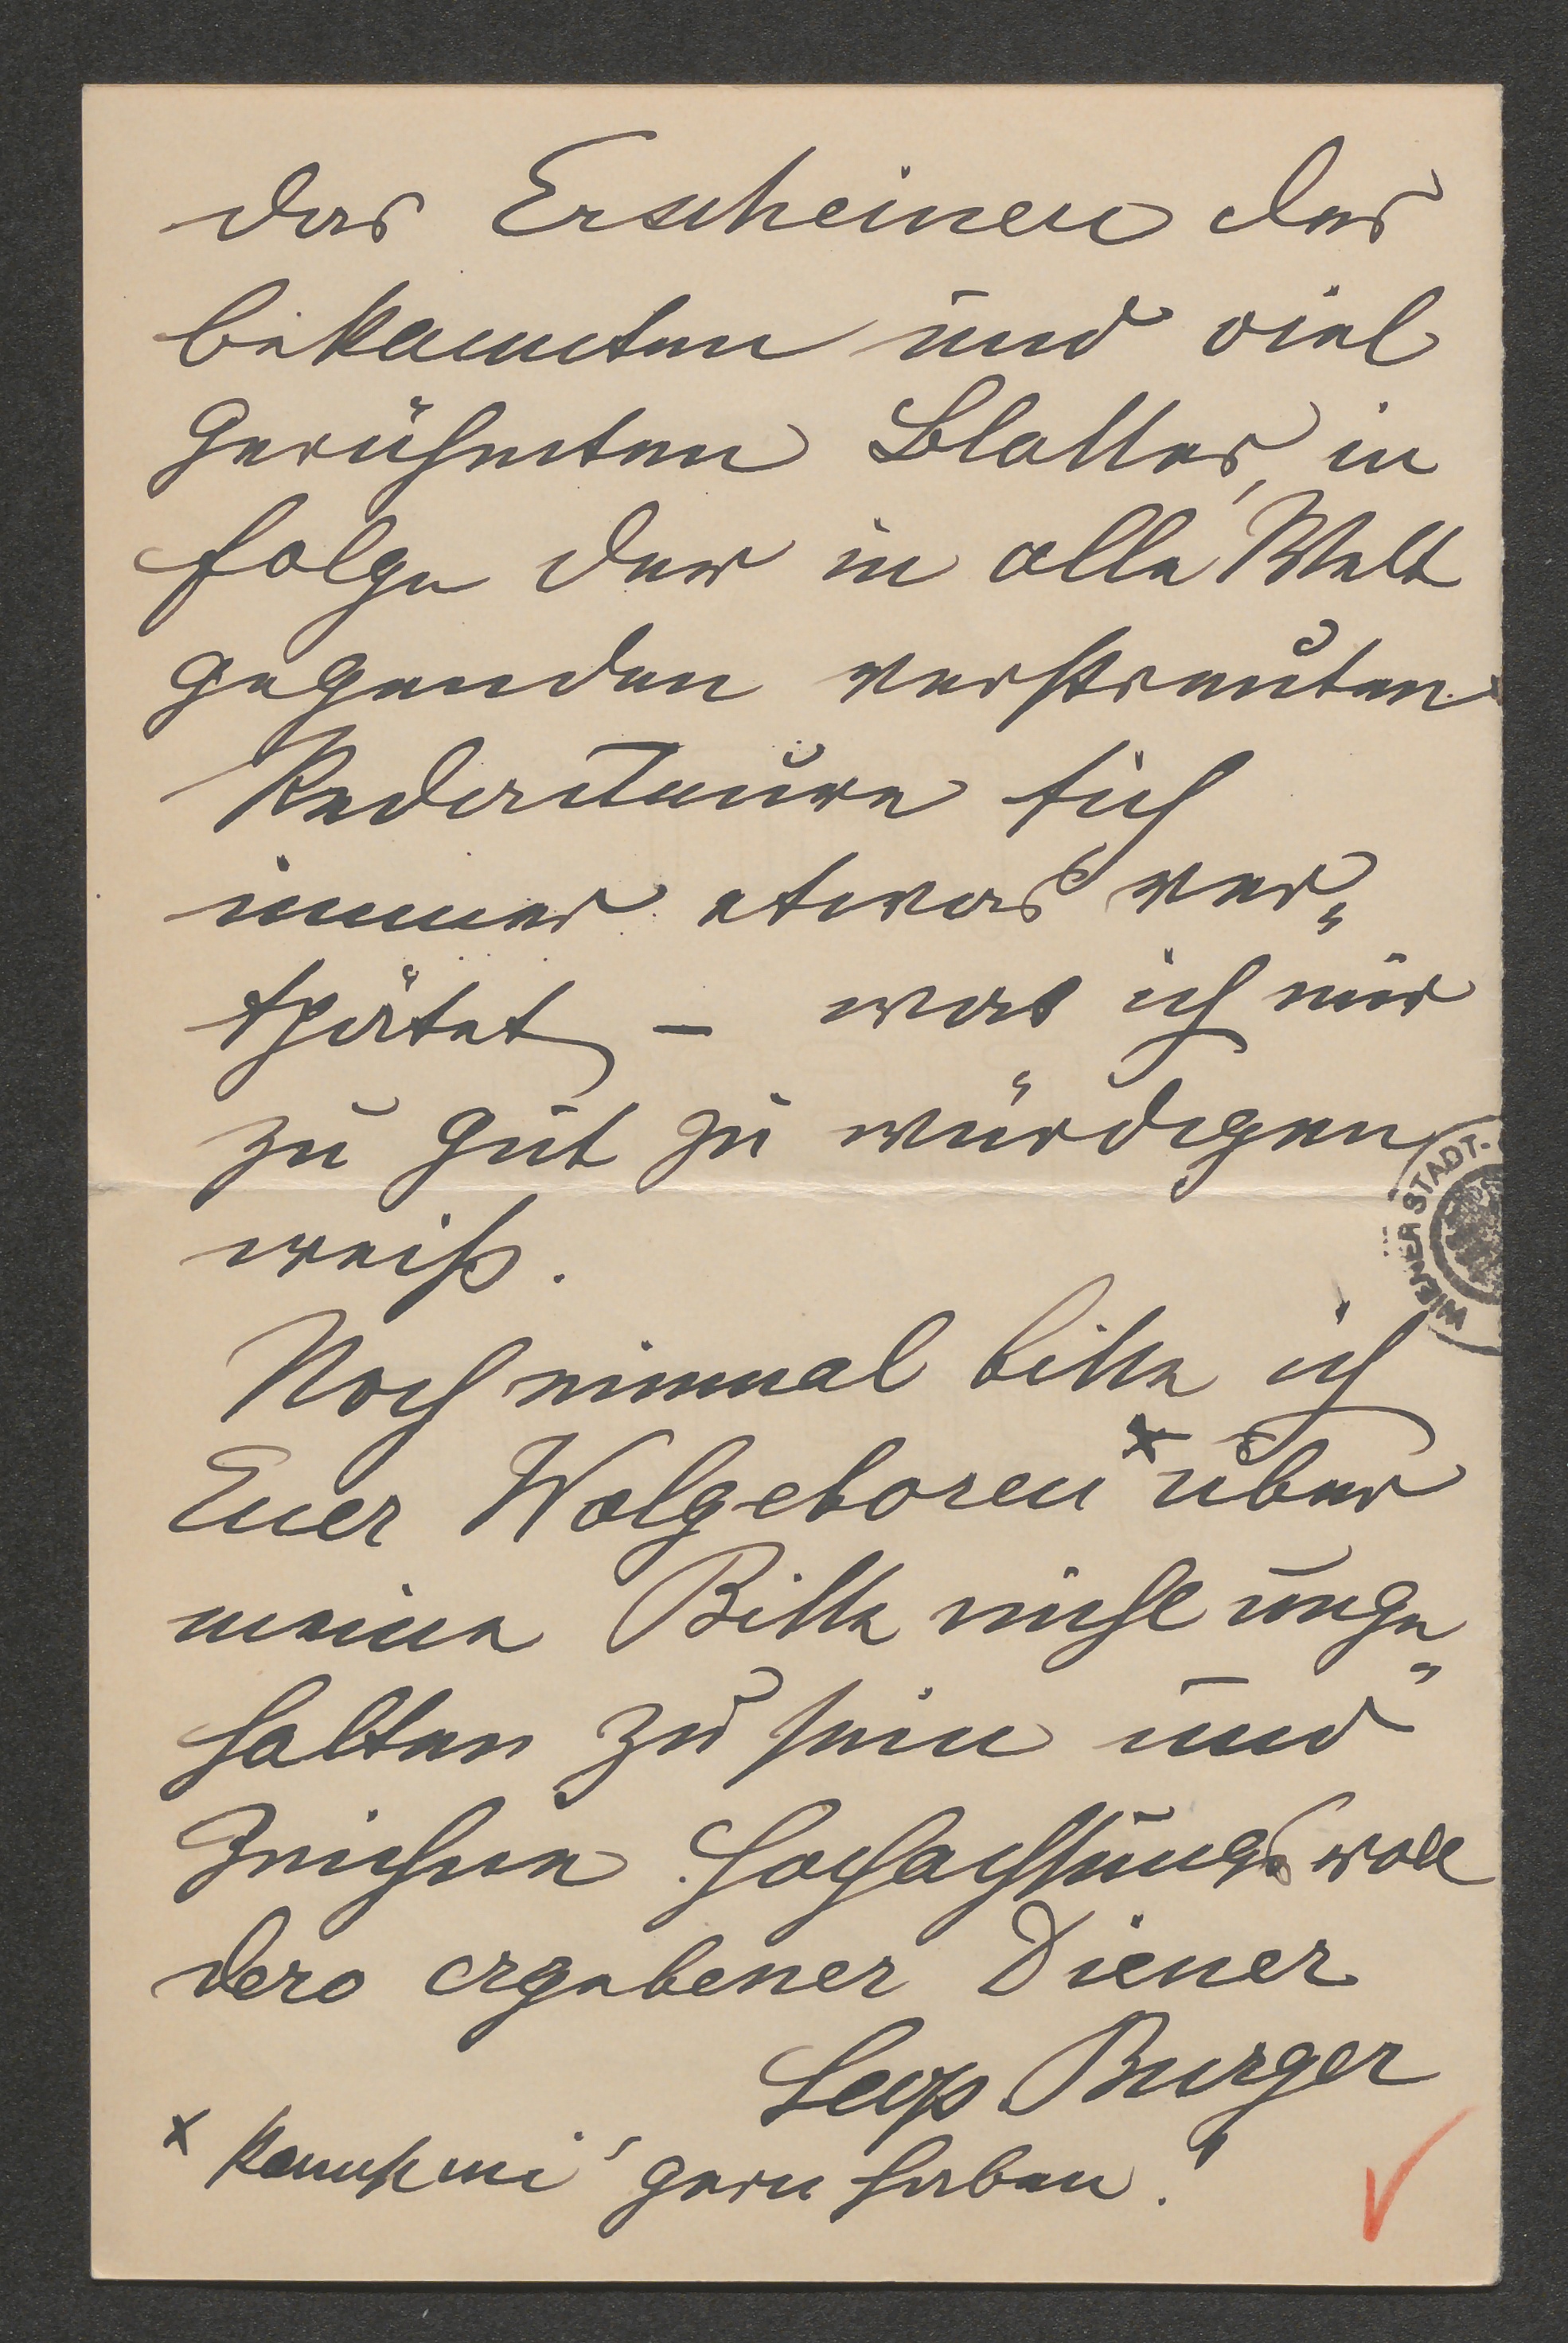 das Erscheinen des
bekannten und viel
gerühmten Blattes, in
folge der in alle Welt
gegenden verstreuten
Redacteure sich
immer etwas ver„
spätet – was ich nur
zu gut zu würdigen
weiß.
Noch einmal bitte ich
Euer Wolgeboren x über
meine Bitte nicht unge„
halten zu sein und
Zeichne hochachtungsvoll
dero ergebener Diener
Burger
x kannst mi' gern haben!"
WIENER STADT-